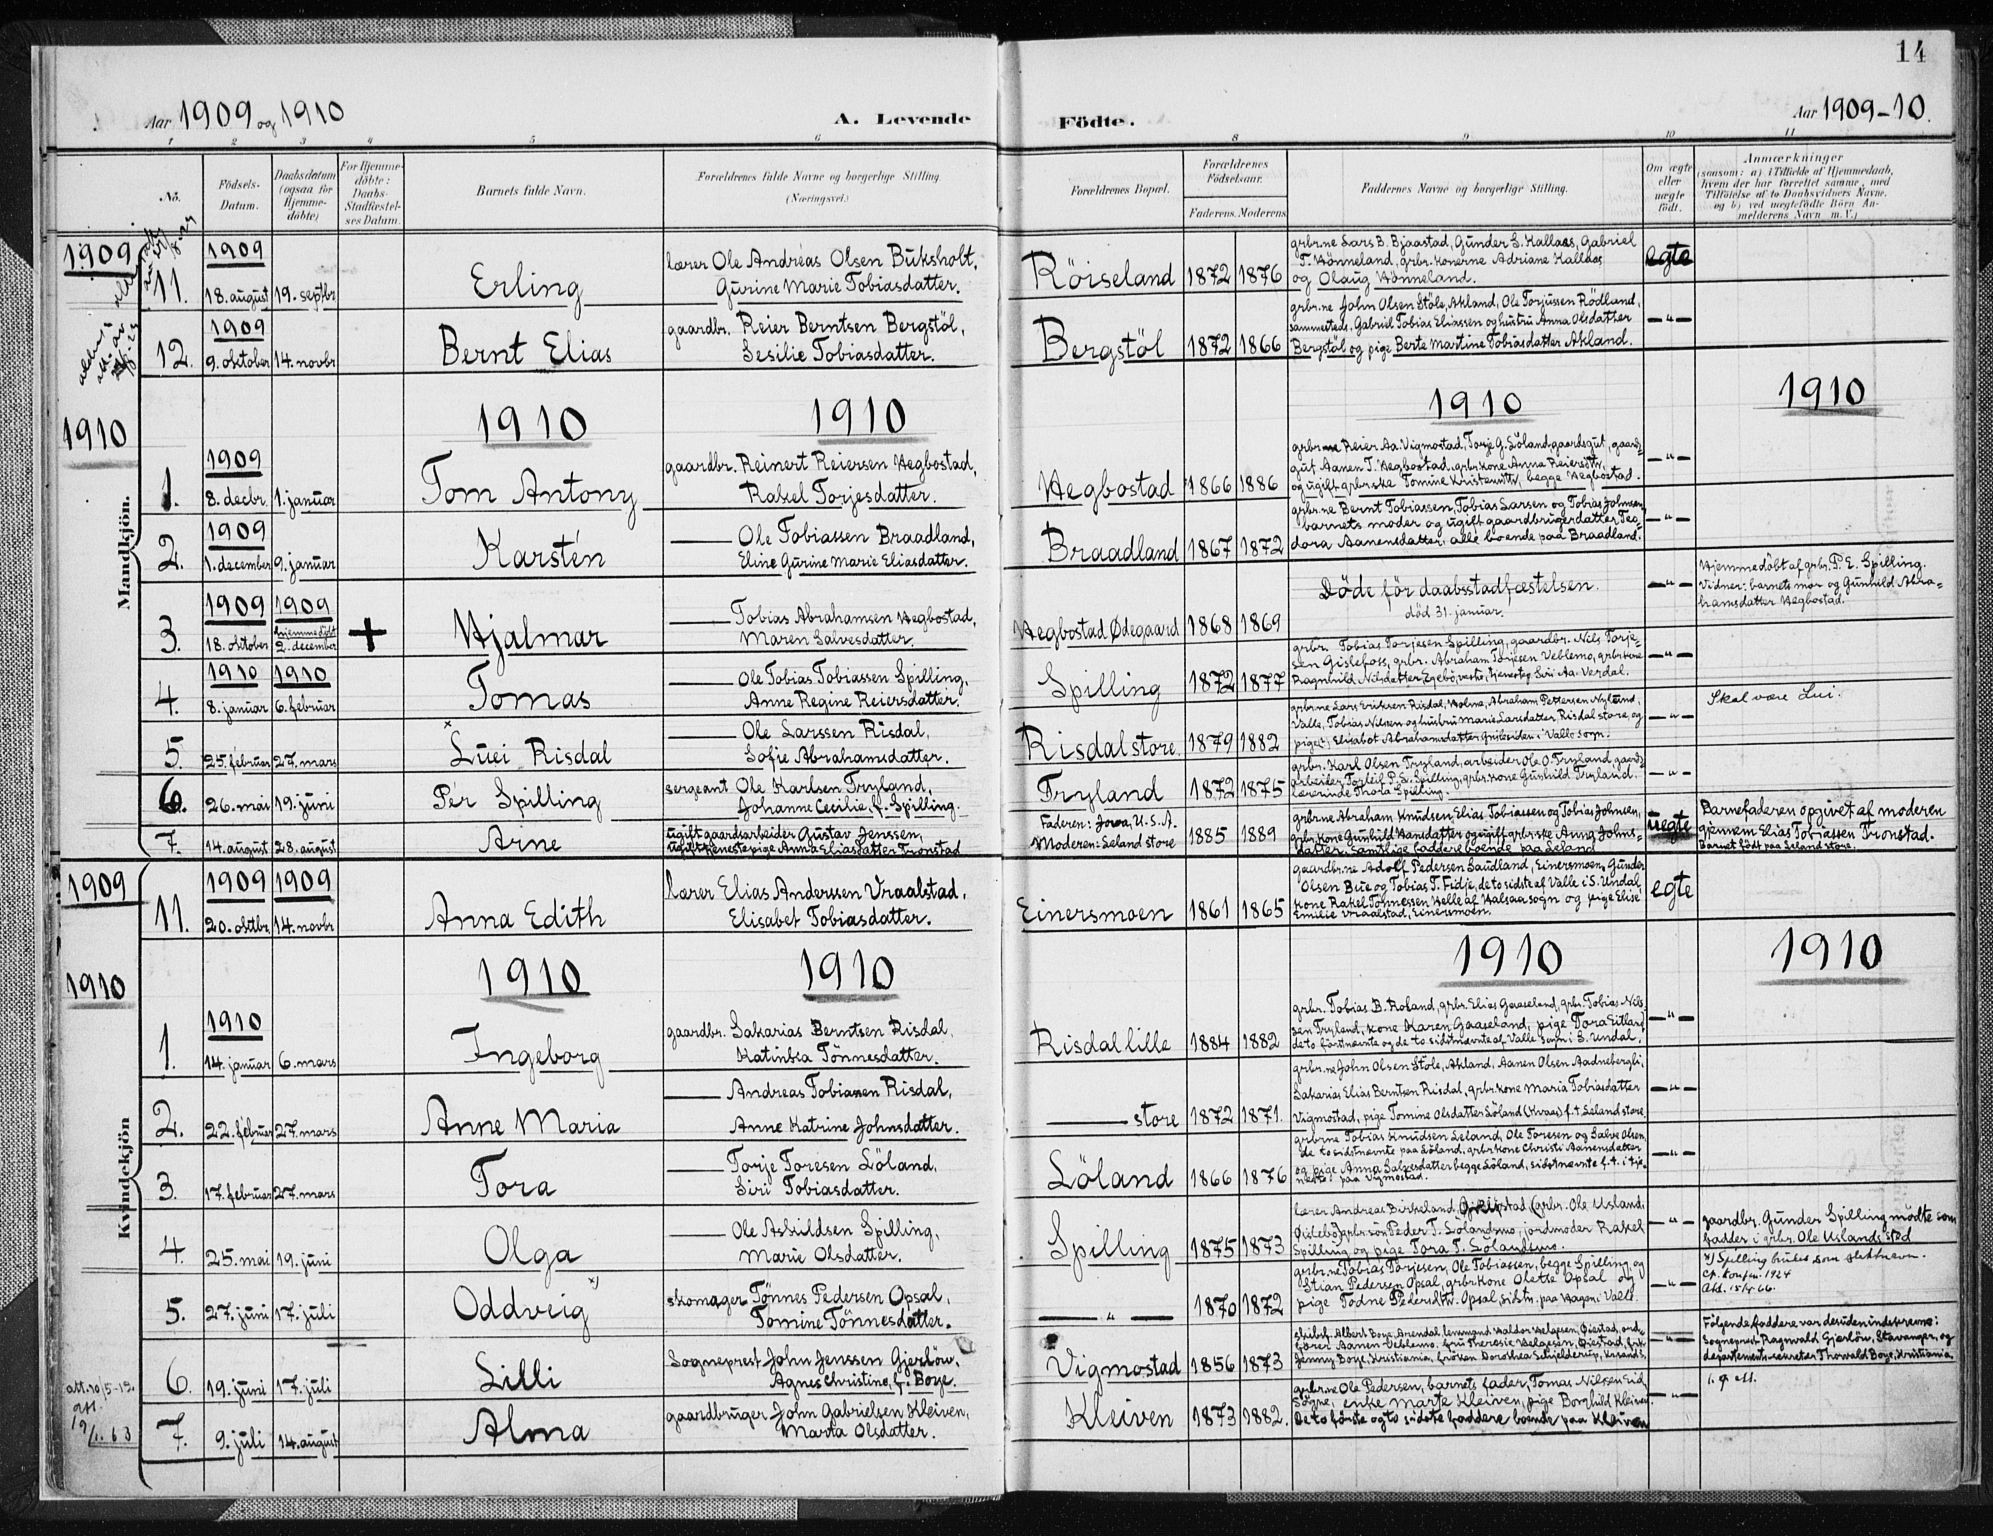 14
Aar 1909 og 1910
A. Levende
Födte.
Aar 1909-10.
1 2 3 4 5 6 8 9 10 11
No.
Födsels-Datum.
Daabsdatum (ogsaa for Hjemme-döbte)
For Hjemme-döbte: Daabs-Stadfæstel-ses Datum.
Barnets fulde Navn.
Forældrenes fulde Navne og borgerlige Stilling.
(Næringsvei.)
Forældrenes Bopæl.
Forældrenes Födselsaar.
Faderens. Moderens.
Faddernes Navne og borgerlige Stilling.
Om ægte eller uægte födt.
Anmærkninger
(saasom: a) i Tilfælde af Hjemmedaab,
hvem der har forrettet samme, med
Tilföielse af to Daabsvidners Navne.
og b) ved uægtefödte Börn An-
melderens Navn m. V.)
Mandkjön.
1909
1909
11. 18. august 19. septbr
Erling
lærer Ole Andreas Olsen Buksholt,
Gurine Marie Tobiasdatter.
Röiseland 1872 1876
grbr.ne Lars B. Bjaastad, Gunder S. Hallaas, Gabriel
T. Hönneland, grbr. konerne Adriane Hallaas
og Olaug Hönneland.
egte
1909
12. 9. oktober 14. novbr
Bernt Elias
gaardbr. Reier Berntsen Bergstöl,
Sesilie Tobiasdatter.
Bergstöl 1872 1866
grbr.ne John Olsen Stöle, Akland, Ole Torjussen Rödland,
sammesteds, Gabriel Tobias Eliassen og hustru Anna Olsdatter
Bergstöl og pige Berte Martine Tobiasdatter Akland.
— " —
1910
1910
1910
1910
1910
1909
1. 8. decbr. 1. januar
Tom Antony
gaardbr. Reinert Reiersen Hegbostad,
Rakel Torjesdatter.
Hegbostad 1866 1886
grbr.ne Reier Aa. Vigmostad, Torje G. Löland, gaardsgut, gaard=
gut Aanen T. Hegbostad, grbr.kone Anna Reiersdtr,
og ugift grbrske Tomine Kristensdtr, begge Hegbostad.
— " —
1909
2. 1. december 9. januar
Karstén
—— Ole Tobiassen Braadland,
Eline Gurine Marie Eliasdatter.
Braadland 1867 1872
grbr.ne Bernt Tobiassen, Tobias Larsen og Tobias Johnsen
barnets moder og ugift gaardbrugerdatter Teo-
dora Aanensdatter, alle boende paa Braadland.
— " —
1909 1909
3. 18. oktober hjemmedöbt 2. december
+
Hjalmar
—— Tobias Abrahamsen Hegbostad,
Maren Salvesdatter.
Hegbostad Ødegaard 1868 1869
Döde för daabsstadfæstelsen.
död 31. januar.
— " —
Hjemmedöbt af grbr. P. E. Spilling.
Vidner: barnets mor og Gunhild Abra-
hamsdatter Hegbostad.
1910 1910
4. 8. januar 6. februar
Tomas
—— Ole Tobias Tobiassen Spilling,
Anne Regine Reiersdatter.
Spilling 1872 1877
grbr. Tobias Torjesen Spilling, gaardbr. Nils Torje-
sen Gislefoss, grbr. Abraham Torjesen Veblemo, grbr.kone
Ragnhild Nilsdatter Egebö, tjenestep. Siri Aa. Verdal.
— " —
5. 25. februar 27. mars
× Luei Risdal
—— Ole Larssen Risdal,
Sofie Abrahamsdatter.
Risdal store. 1879 1882
grbr.ne Lars Eriksen Risdal, Holme, Abraham Pettersen Nylund,
Valle, Tobias Nilsen og hustru Marie Larsdatter, Risdal store, og
pige Elisabet Abrahamsdatter i Valle sogn.
— " —
Skal være Lui.
6. 26. mai 19. juni
Per Spilling
sergeant Ole Karlsen Tryland,
Johanne Cecilie f. Spilling.
Tryland 1872 1875
grbr. Karl Olsen Tryland, arbeider Ole O. Tryland, gaard=
arbeider Torleif P. E. Spilling, grbr.kone Gunhild Tryland.
lærerinde Thora Spilling.
— " —
7. 14. august 28. august
Arne
ugift gaardsarbeider Gustav Jenssen,
ugift tjenestepige Anna Eliasdatter Tronstad
Faderen: Jowa, U.S.A.
Moderen: Leland store
1885 1889
grbr.ne Abraham Knudsen, Elias Tobiassen og Tobias Johnsen,
grbr.kone Gunhild Hansdatter og ugift grbr.ske Anna Johns=
datter, samtlige faddere boende paa Leland
uegte
Barnefaderen opgivet af moderen
gjennem Elias Tobiassen Tronstad.
Barnet födt paa Leland store.
Kvindekjön
1909
1909 1909
11. 20. oktbr. 14. novbr
Anna Edith
lærer Elias Anderssen Vraalstad,
Elisabet Tobiasdatter.
Einersmoen 1861 1865
gaardbr.ne Adolf Pedersen Saudland, Einersmoen, Gunder
Olsen Bue og Tobias T. Fidje, de to sidste af Valle i S. Undal,
kone Rakel Tönnessen Helle af Halsaa sogn og pige Elise
Emilie Vraalstad, Einersmoen.
egte
1910
1910
1910
1910
1910
1910
1. 14. januar 6. mars
Ingeborg
gaardbr. Sakarias Berntsen Risdal,
Katinka Tönnesdatter.
Risdal lille 1884 1882
grbr. Tobias B. Roland, grbr. Elias Gaaseland, grbr. Tobias Nils-
sen Tryland, kone Karen Gaaseland, pige Tora Eitland
de to förstnævnte og de to sidstnævnte af Valle sogn i S. Undal.
— " —
2. 22. februar 27. mars
Anne Maria
—— Andreas Tobiassen Risdal,
Anne Katrine Johnsdatter.
—— store 1872 1871.
grbr.ne John Olsen Stöle, Akland, Aanen Olsen Aadnebergli,
Sakarias Elias Berntsen Risdal, grbr.kone Maria Tobiasdatter
Vigmostad, pige Tomine Olsdatter Löland (Kvaas) f. t. Leland store.
— " —
3. 17. februar 27. mars
Tora
—— Torje Toresen Löland,
Siri Tobiasdatter.
Löland 1866 1876
grbr.ne Tobias Knudsen Leland, Ole Toresen og Salve Olsen,
de to sidstnævnte paa Löland, grbr.kone Christi Aanensdatter
og pige Anna Salvesdatter begge Löland, sidstnævnte f. t. i tje-
neste paa Vigmostad.
— " —
4. 25. mai 19. juni
Olga
—— Ole Askildsen Spilling,
Marie Olsdatter.
Spilling 1875 1873
lærer Andreas Birkeland, (grbr. Ole Usland,
Øislebö) grbr.sön Peder T. Lölandsmo, jordmoder Rakel
Spilling og pige Tora T. Lölandsmo.
— " —
gaardbr. Gunder Spilling mödte som
fadder i grbr. Ole Uslands sted
5. 27. juni 17. juli
Oddveig ×)
skomager Tönnes Pedersen Opsal,
Tomine Tönnesdatter.
— " — 1870 1872
grbr.ne Tobias Torjesen, Ole Tobiassen, begge Spilling, og
Stian Pedersen Opsal, grbr.kone Olette Opsal og
pige Todne Pedersdtr. Opsal, sidstn. paa Hagen i Valle.
— " —
×) Spilling brukes som slektsnavn.
Cp. konfm. 1924
6. 19. juni 17. juli
Lilli
Sogneprest John Jenssen Gjerlöw,
Agnes Christine, f. Boye.
Vigmostad 1856 1873
skibsf. Albert Boye, Arendal, lensmand Haldor Helgesen, Øiestad, ord=
förer Aanen Veblemo, fru Theresie Helgesen, Øiestad, frk.
Jenny Boye, Kristiania, fröken Dorothea Schjelderup, Krsand S.
— " —
Fölgende faddere var desuden indskrevne:
Sogneprest Ragnvald Gjerlöw, Stavanger, og
departements-sekretær Thorvald Boye, Kristiania
7. 9. juli 14. august
Alma
gaardbruger John Gabrielsen Kleiven,
Marta Olsdatter.
Kleiven 1873 1882.
grbr.ne Ole Pedersen, barnets fader, Tomas Nilssen Eid,
Søgne, enke Marte Kleiven, pige Borghild Kleiven.
De to förste og to sidste faddere boende paa Kleiven
— " —
att. 10/5-19.
att.